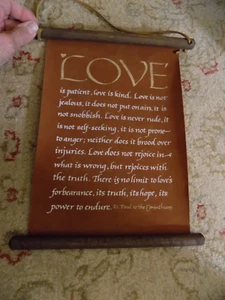 LOVE
is patient, love is kind. Love is not
jealous, it does not put on airs, it is
not snobbish. Love is never rude, it
is not self-seeking, it is not prone
to anger; neither does it brood over
injuries. Love does not rejoice in
what is wrong, but rejoices with
the truth. There is no limit to love's
forbearance, its truth, its hope, its
power to endure. St. Paul to the Corinthians